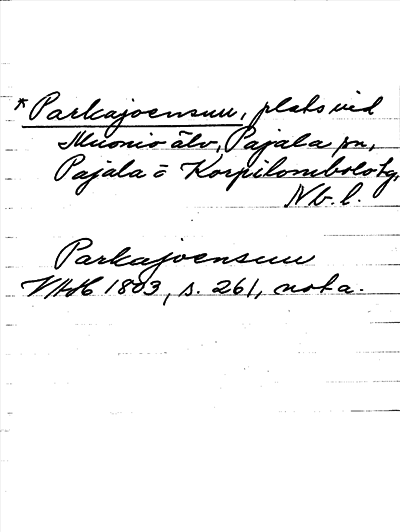 * Parkajoensuu, plats vid
Muonio älv, Pajala sn,
Pajala o Korpilombolo tg,
Nb. l.
Parkajoensuu
VHAH 1803, s. 261, nota.